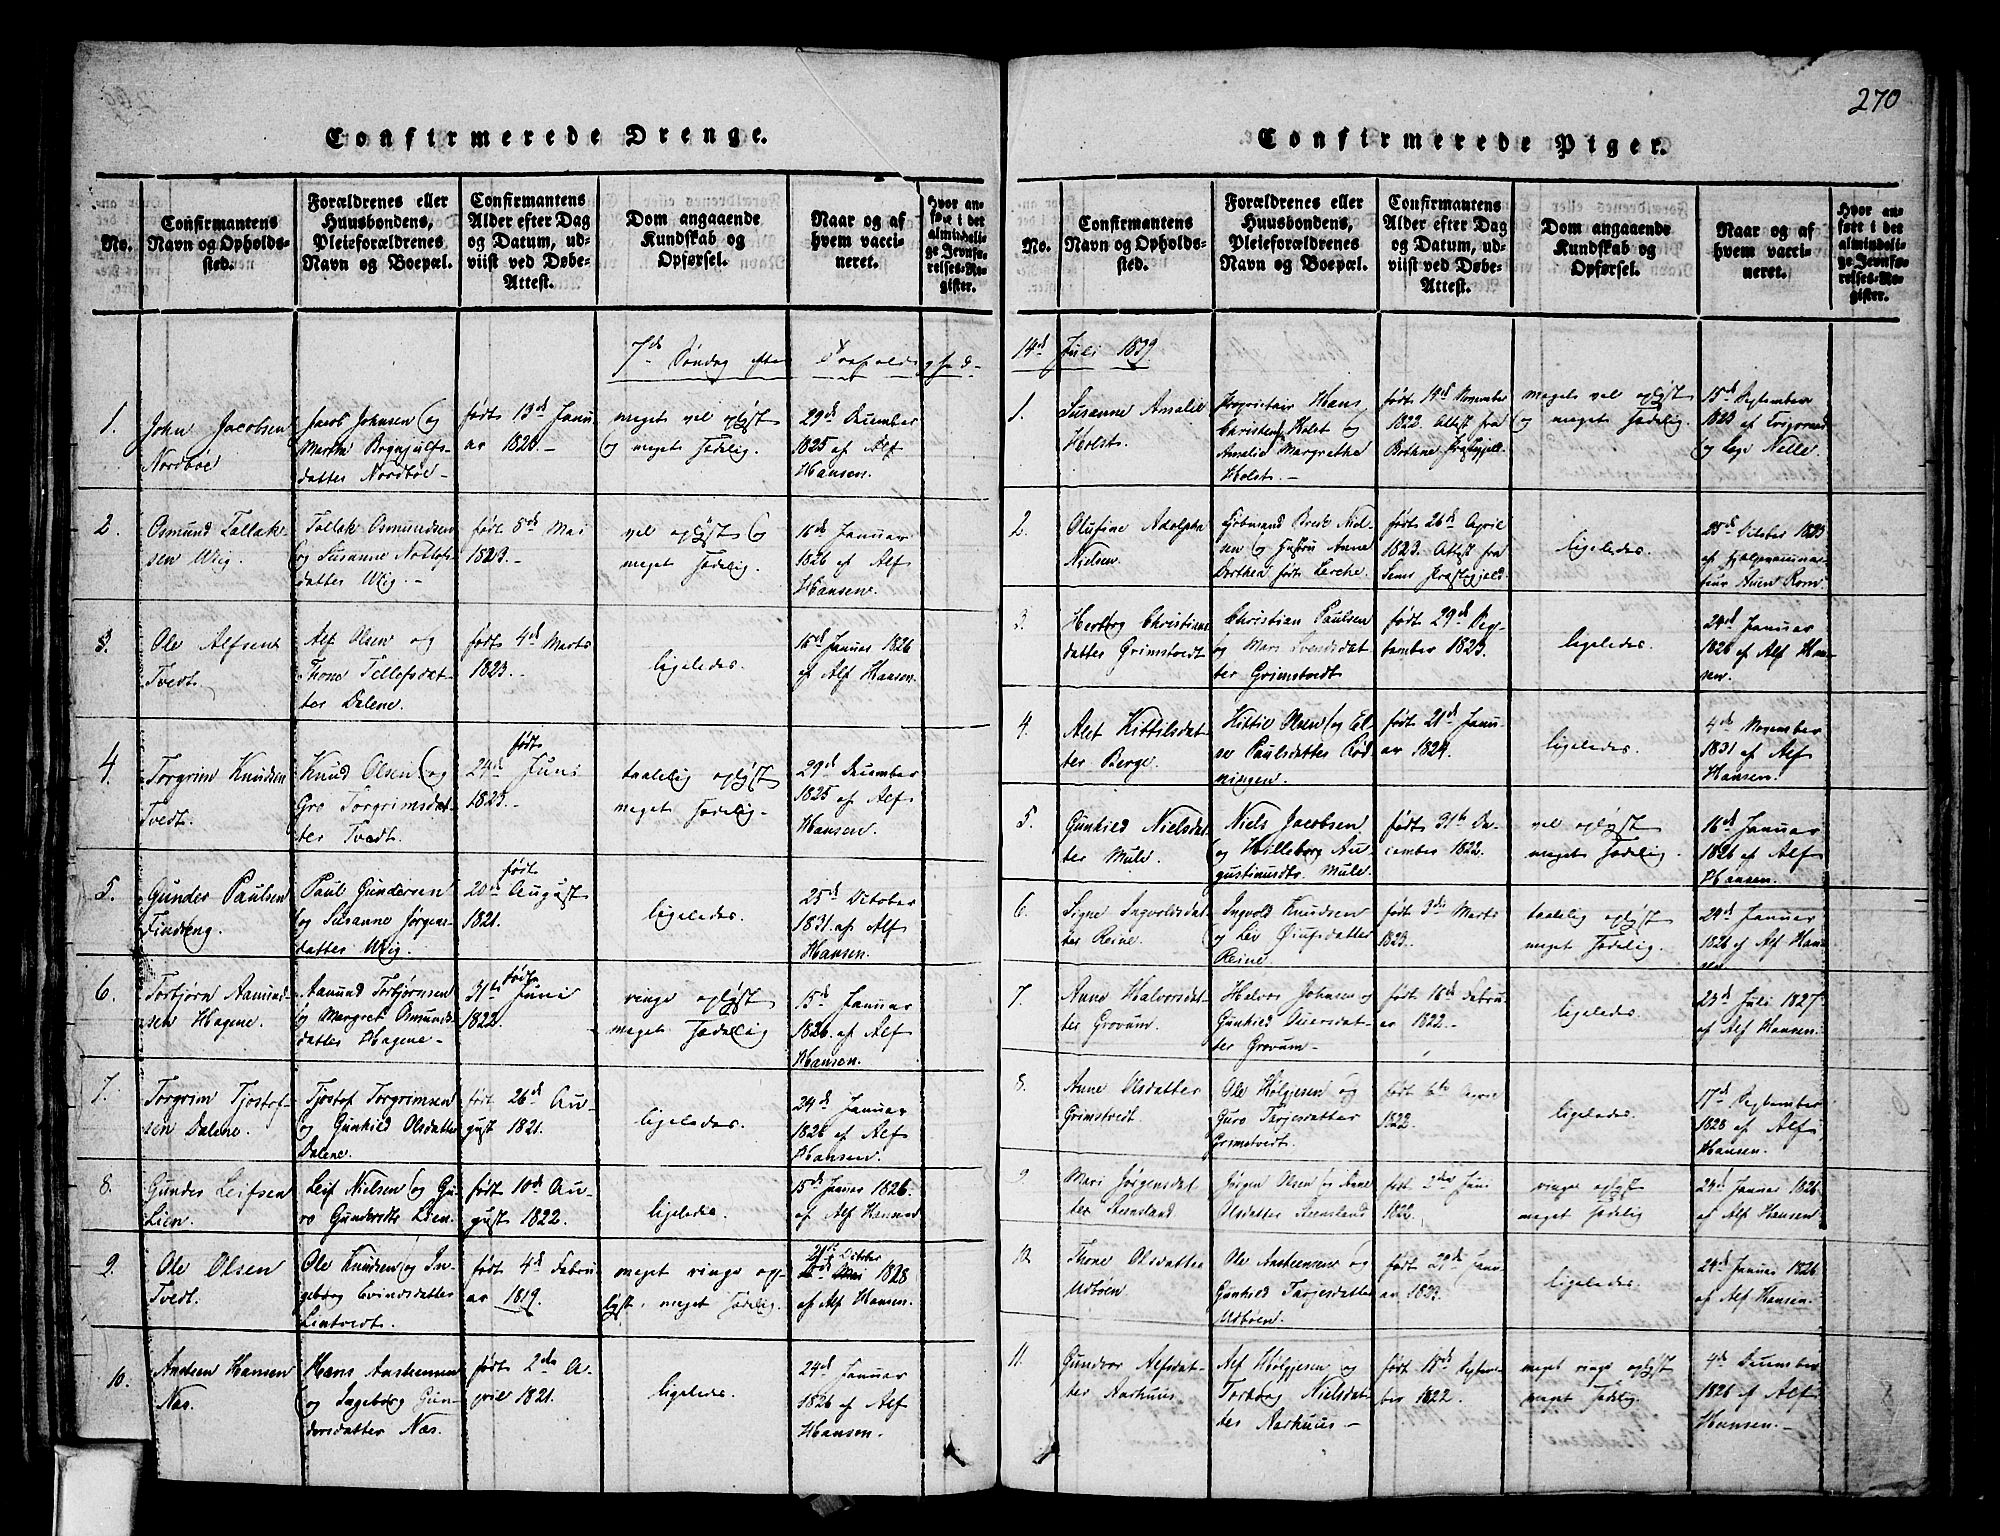 270
Confirmerede Drenge.
No.
Confirmantens
Navn og Opholds-
sted.
Forældrenes eller
Huusbondens,
Pleieforældrenes
Navn og Boepæl.
Confirmantens
Alder efter Dag
og Datum, ud-
viist ved Døbe-
Attest.
Dom angaaende
Kundskab og
Opførsel.
Naar og af
hvem vacci-
neret.
Hvor an-
ført i det
almindeli-
ge Jevnfø-
relses-Re-
gister.
7de Søndag efter Trefoldighed-
1.
John Jacobsen
Nordbøe
Jacob Johnsen og
Marthe Brynjulfs-
datter Nordbøe-
født 13de Janu
ar 1823.-
meget vel oplyst
og meget sædelig.
29de December
1825 af Alf
Hansen.
2.
Osmund Tallak-
sen Wiig.
Tallak Osmundsen
og Susanne
datter Wiig.-
født 5de Mai
1823.-
vel oplyst og
meget sædelig.
16de Januar
1826 af Alf
Hansen.
3.
Ole Alfsen
Tvedt.
Alf Olsen og
Thone Tellefsdat-
ter Dalene.
født 4de Marts
1823.-
ligeledes.
16de Januar 1826
af Alf Hansen.
4.
Torgrim Knudsen
Tvedt.
Knud Olsen og
Gro Torgrimsdat-
ter Tvedt.
født
24de Juni
1823.-
taalelig oplyst
meget sædelig.
29de December
1825 af Alf
Hansen.
5.
Gunder Paulsen
Findreng.
Paul Gundersen
og Susanne Jørgens-
datter Wiig.
født
20de August
1821.
ligeledes.
25de October
1831. af Alf
Hansen.
6.
Torbjørn Aamund-
sen Hagene.
Aamund Torbjørnsen
og Margret Osmunds-
datter Hagene-
født
31te Juni
1822.
ringe oplyst
meget sædelig
15de Januar
1826. af Alf
Hansen.
7.
Torgrim Tjostof-
sen Dalene.
Tjostof Torgrimsen
og Gunhild Olsdatter
Dalene.
født 26de Au-
gust 1821.
ligeledes.
24de Januar
1826 af Alf
Hansen.
8.
Gunder Leifsen
Lien.
Leif Nielsen og Gu-
ro Lien.
født 10de Au-
gust 1822.
ligeledes.
15de Januar 1826.
af Alf Hansen.
9.
Ole Olsen
Tvedt.
Ole Knudsen og In-
geborg Evindsdatter
Lintvedt.
født 4de Febru
ar 1819.
meget ringe op-
lyst, meget sædelig.
October
1828
af Alf Hansen.
10.
Hansen
Næs.
Hans
og Ingeborg Gun-
dersdatter Næs.
født 2den A-
pril 1821.
ligeledes.
24de Januar
1826 af Alf
Hansen.
Confirmerede Piger.
No.
Confirmantens
Navn og Opholds-
sted.
Forældrenes eller
Huusbondens,
Pleieforældrenes
Navn og Boepæl.
Confirmantens
Alder efter Dag
og Datum, ud-
viist ved Døbe-
Attest.
Dom angaaende
Kundskab og
Opførsel.
Naar og af
hvem vacci-
neret.
Hvor an-
ført i det
almindeli-
ge Jevnfø-
relses-Re-
gister.
14de Juli 1839.
1.
Susanne Amalie
Holst.
Proprietair Hans
Christensen Holst og
Amalie Margrethe
Holst.-
født 19de November
1822. Attest fra
Bothne Præstegjeld
meget vel oplyst
og meget sædelig.
15de September
1823 af
Nelle.
2.
Olufine Adolpha
Nielsen.
Kjøbmand Brede Niel-
sen og Hustru Anne
Dorthea født Lerche.
født 26de April
1823. Attest fra
Sems Præstegjeld.
ligeledes.
25de October 1823
af
3.
Herborg Christians
datter Grimstvedt
Christian Paulsen
og Mari Svendsdat
ter Grimstvedt
født 29de Sep-
tember 1823.
ligeledes.
24de Januar
1826 af Alf Han-
sen.
4.
Alet Kittilsdat-
ter Berge.
Kittil Olsen og El-
se Paulsdatter Rød
ningen.
født 21de Janu-
ar 1824.
ligeledes.
4de November
1831 af Alf
Hansen.
5.
Gunhild Nielsdat-
ter Mule.
Niels Jacobsen
og Hilleborg Au-
gustinusdtr. Mule.
født 31te De-
cember 1822.
vel oplyst
meget sædelig.
16de Januar
1826 af Alf
Hansen.
6.
Signe Ingvoldsdat-
ter Reine.
Ingvold Knudsen
og Liv
Reine.
født 3die Marts
1823.
taalelig oplyst
meget sædelig.
24de Januar
1826 af Alf Han
sen.
7.
Anne Halvorsdat-
ter Grovum.
Halvor Johnsen og
Gunhild
ter Grovum-
født 16de Febru
ar 1822.
ligeledes.
23de Juli 1827.
af Alf Hansen.
8.
Anne Olsdatter
Grimstvedt
Ole Hølgjesen og
Guro Tarjesdatter
Grimstvedt.
født 6te April
1822.
ligeledes.
17de September
1828 af Alf
Hansen.
9.
Mari Jørgensdat
ter Steensland
Jørgen Olsen og Anne
Olsdatter Steensland
født 2den Juni
1822.
ringe oplyst
meget sædelig
24de Januar 1826.
af Alf Hansen
10.
Thone Olsdatter
Udbøen
Ole Austeensen og
Gunhild Tarjesdatter
Udbøen.
født 29de Janu-
ar 1823.
ligeledes.
24de Januar 1826.
af Alf Hansen.
11.
Gundvor Alfsdat-
ter Aarhuus
Alf Hølgjesen og
Torborg Nielsdat
ter Aarhuus-
født 18de Septem-
ber 1822.
meget ringe oplyst
meget sædelig.
4de December
1826 af Alf
Hansen.-